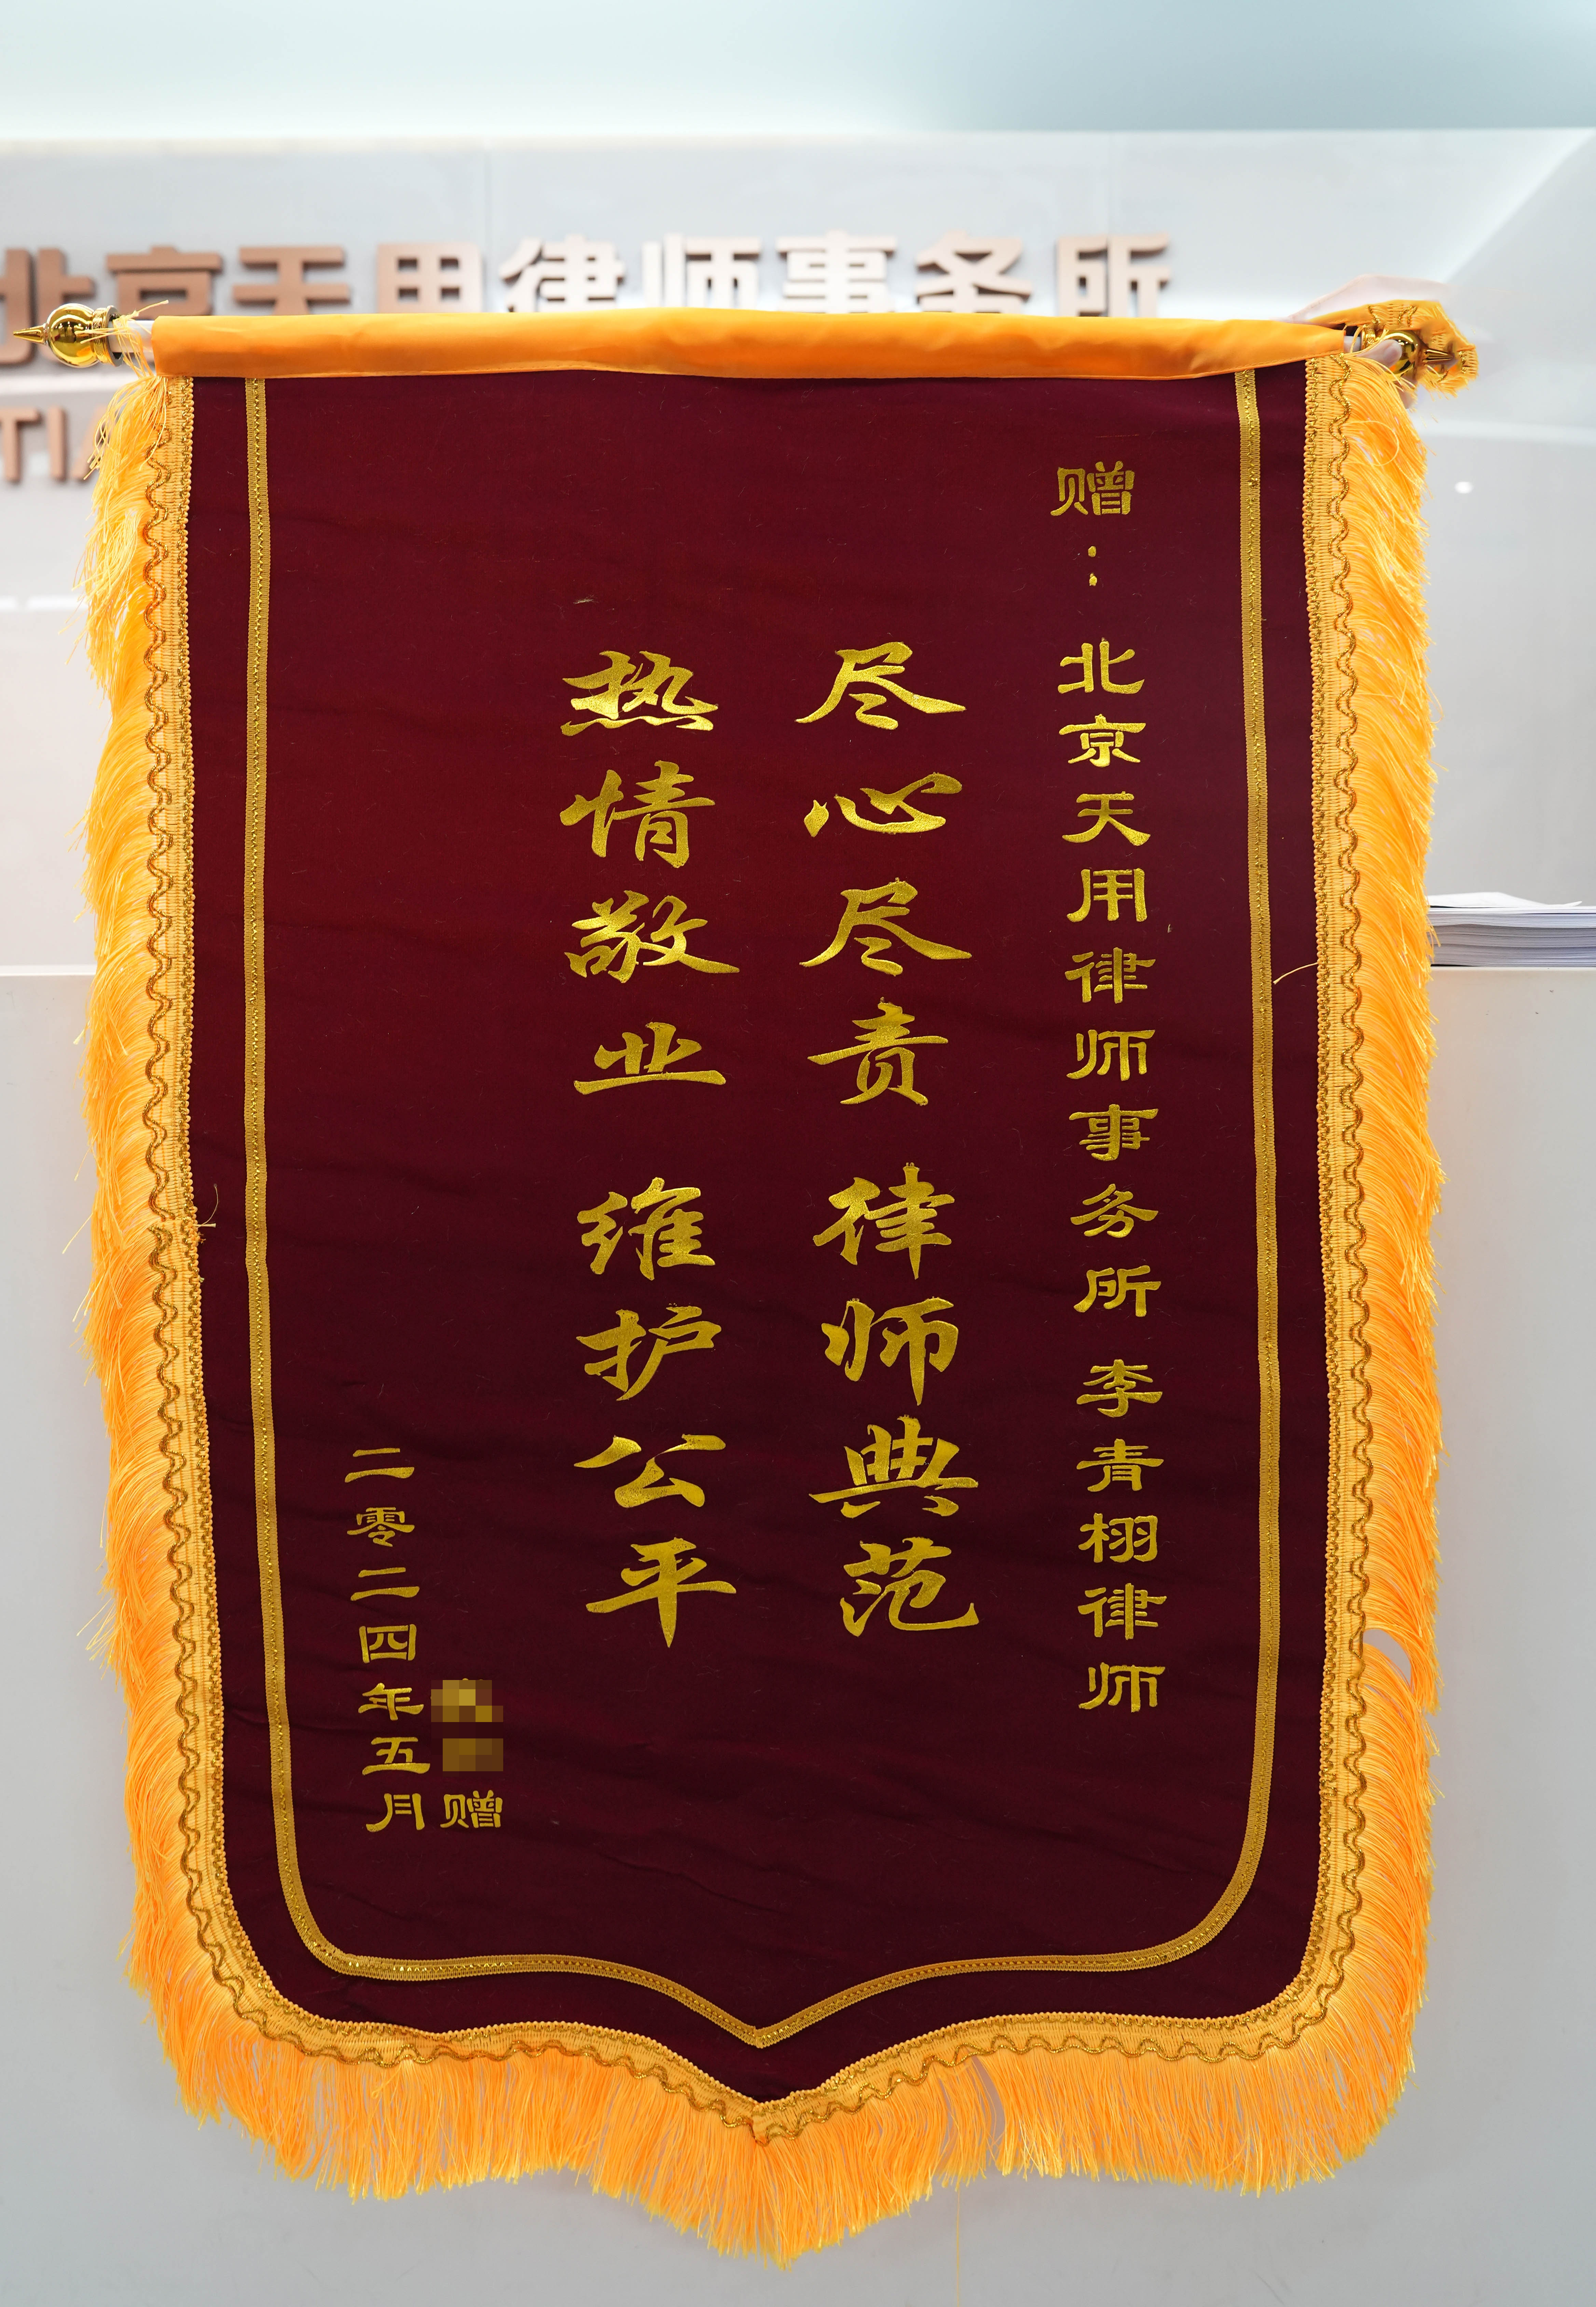 北京天用律师事务所
TIA
赠：北京天用律师事务所 李青栩律师
尽心尽责 律师典范
热情敬业 维护公平
赠
二零二四年五月